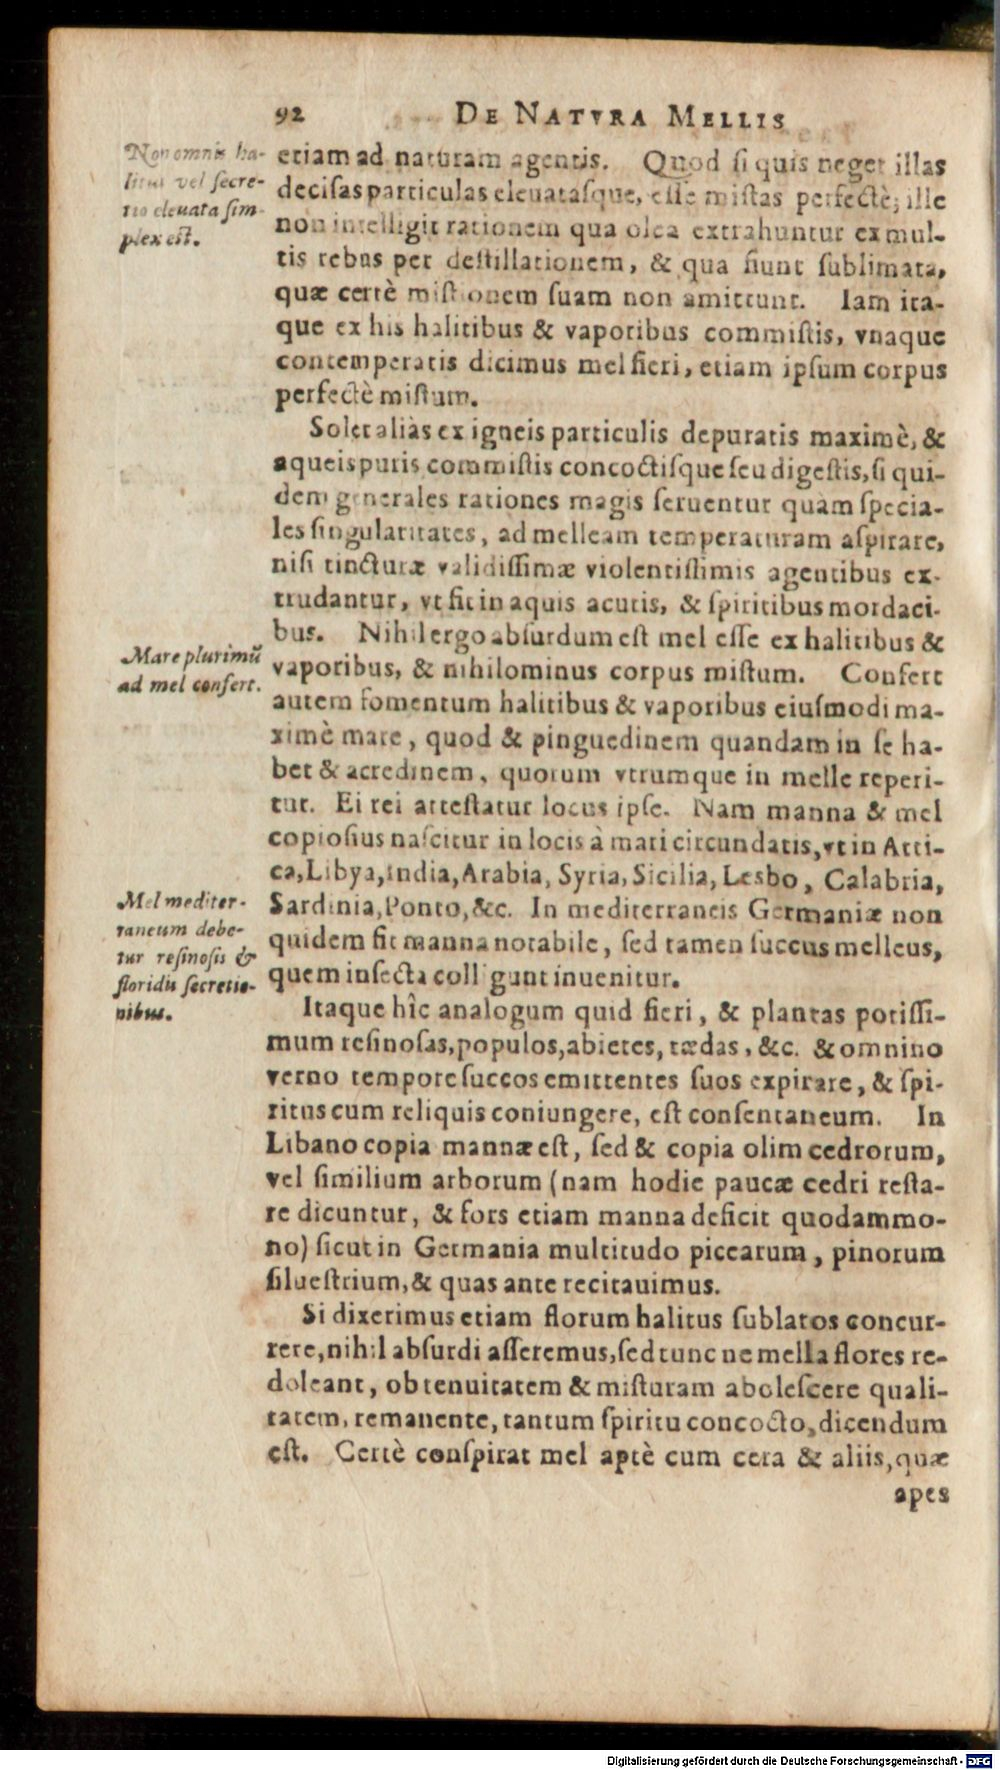 92 DE NATVRA MELLIS
Non omnis ha-
litus vel secre-
tio eleuata sim-
plex est.
etiam ad naturam agentis. Quod si quis neget illas
decisas particulas eleuatasque, esse mistas perfectè; ille
non intelligit rationem qua olea extrahuntur ex mul-
tis rebus per destillationem, & qua fiunt sublimata,
quæ certè mistionem suam non amittunt. Iam ita-
que ex his halitibus & vaporibus commistis, vnaque
contemperatis dicimus mel fieri, etiam ipsum corpus
perfectè mistum.
Solet aliàs ex igneis particulis depuratis maximè, &
aqueis puris commistis concoctisque seu digestis, si qui-
dem generales rationes magis seruentur quàm specia-
les singularitates, ad melleam temperaturam aspirare,
nisi tincturæ validissimæ violentissimis agentibus ex-
trudantur, vt fit in aquis acutis, & spiritibus mordaci-
bus. Nihil ergo absurdum est mel esse ex halitibus &
Mare plurimũ
ad mel confert.
vaporibus, & nihilominus corpus mistum. Confert
autem fomentum halitibus & vaporibus eiusmodi ma-
ximè mare, quod & pinguedinem quandam in se ha-
bet & acredinem, quorum vtrumque in melle reperi-
tur. Ei rei attestatur locus ipse. Nam manna & mel
copiosius nascitur in locis à mari circundatis, vt in Atti-
ca, Libya, India, Arabia, Syria, Sicilia, Lesbo, Calabria,
Mel mediter-
raneum debe-
tur resinosis &
floridis secretio-
nibus.
Sardinia, Ponto, &c. In mediterraneis Germaniæ non
quidem fit manna notabile, sed tamen succus melleus,
quem insecta colligunt inuenitur.
Itaque hîc analogum quid fieri, & plantas potissi-
mum resinosas, populos, abietes, tædas, &c. & omnino
verno tempore succos emittentes suos expirare, & spi-
ritus cum reliquis coniungere, est consentaneum. In
Libano copia mannæ est, sed & copia olim cedrorum,
vel similium arborum (nam hodie paucæ cedri resta-
re dicuntur, & fors etiam manna deficit quodammo-
no) sicut in Germania multitudo picearum, pinorum
siluestrium, & quas ante recitauimus.
Si dixerimus etiam florum halitus sublatos concur-
rere, nihil absurdi asseremus, sed tunc ne mella flores re-
doleant, ob tenuitatem & misturam abolescere quali-
tatem, remanente, tantum spiritu concocto, dicendum
est. Certè conspirat mel aptè cum cera & aliis, quæ
apes
Digitalisierung gefördert durch die Deutsche Forschungsgemeinschaft - DFG